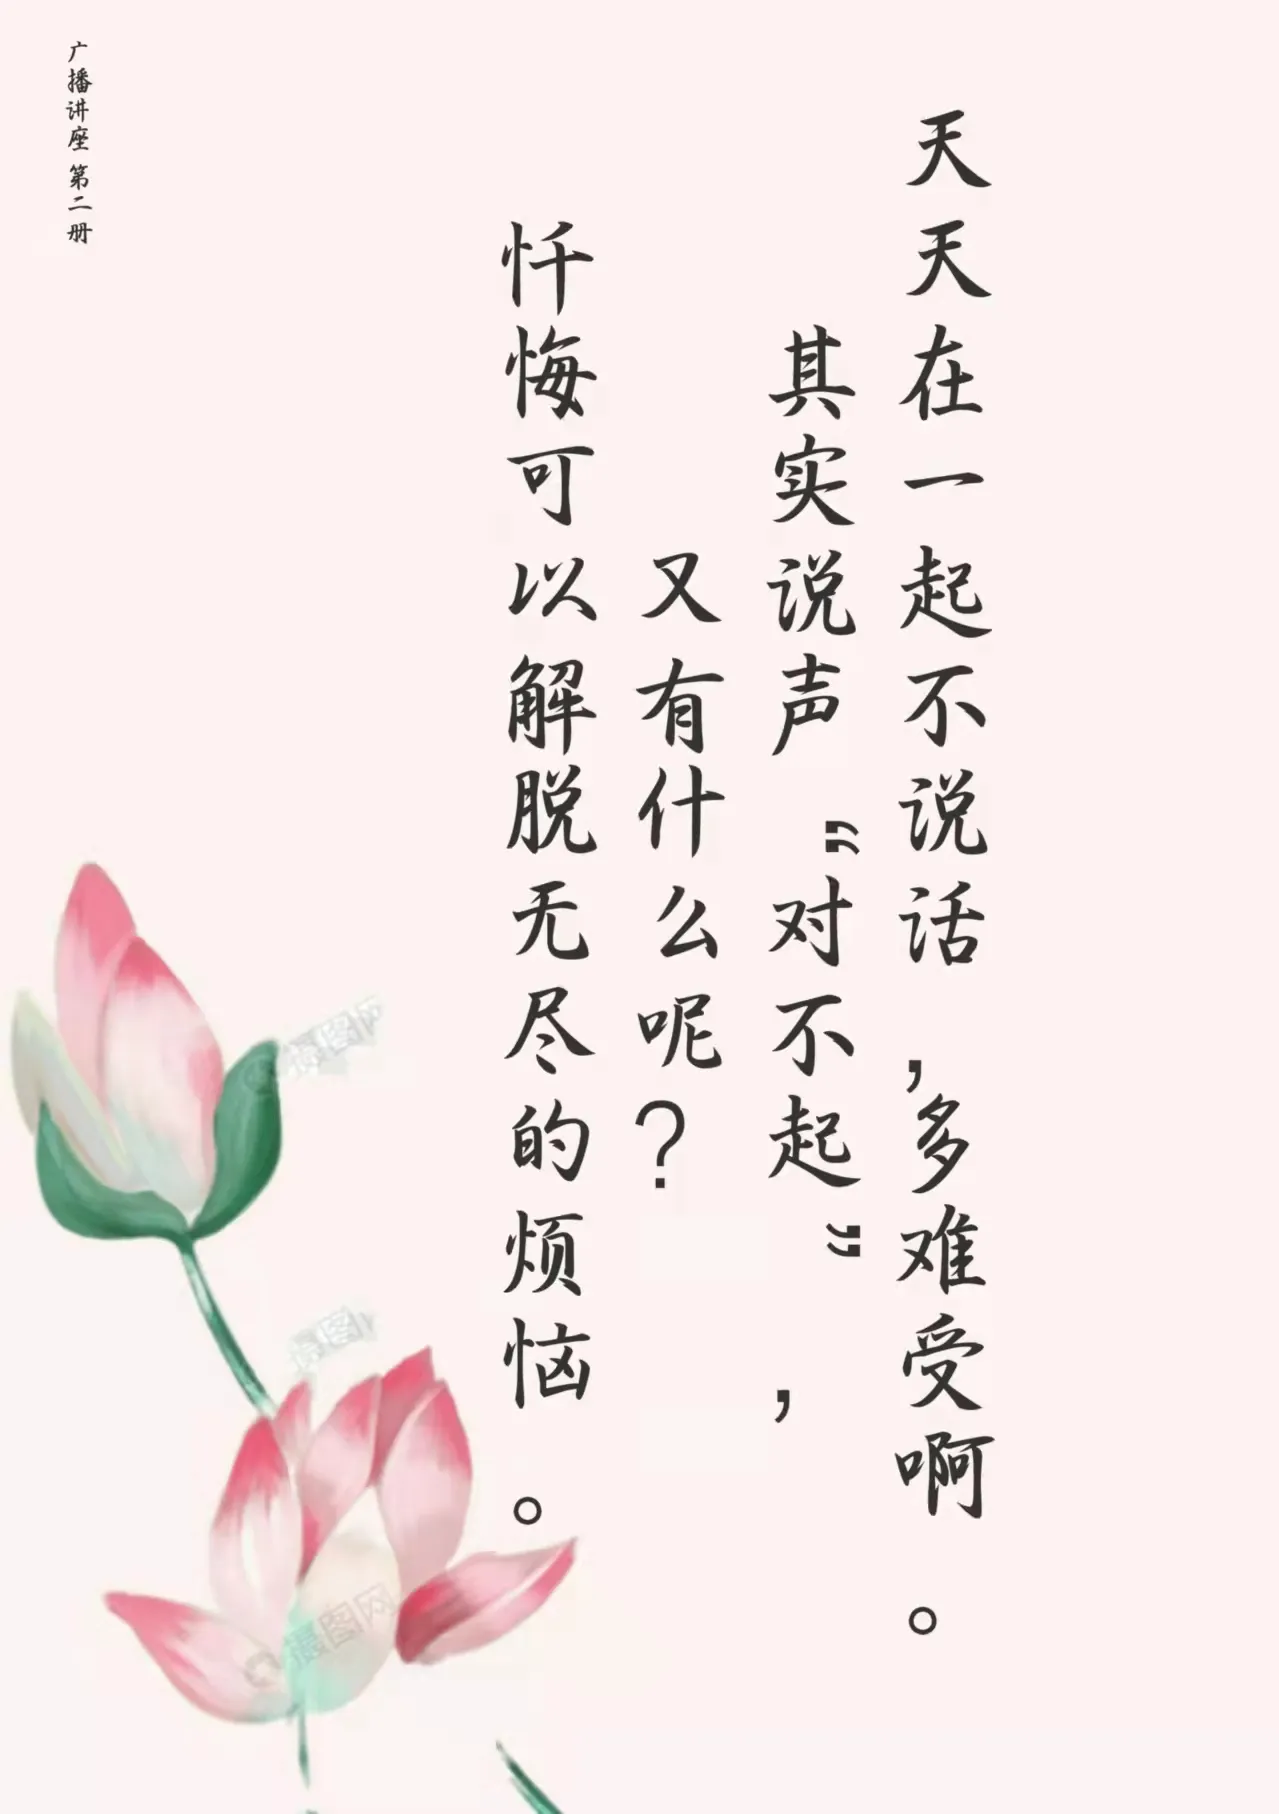 天天在一起不说话,多难受啊。
其实说声”对不起“,
又有什么呢?
忏悔可以解脱无尽的烦恼。
广播讲座 第二册
摄图网
摄图网
摄图网